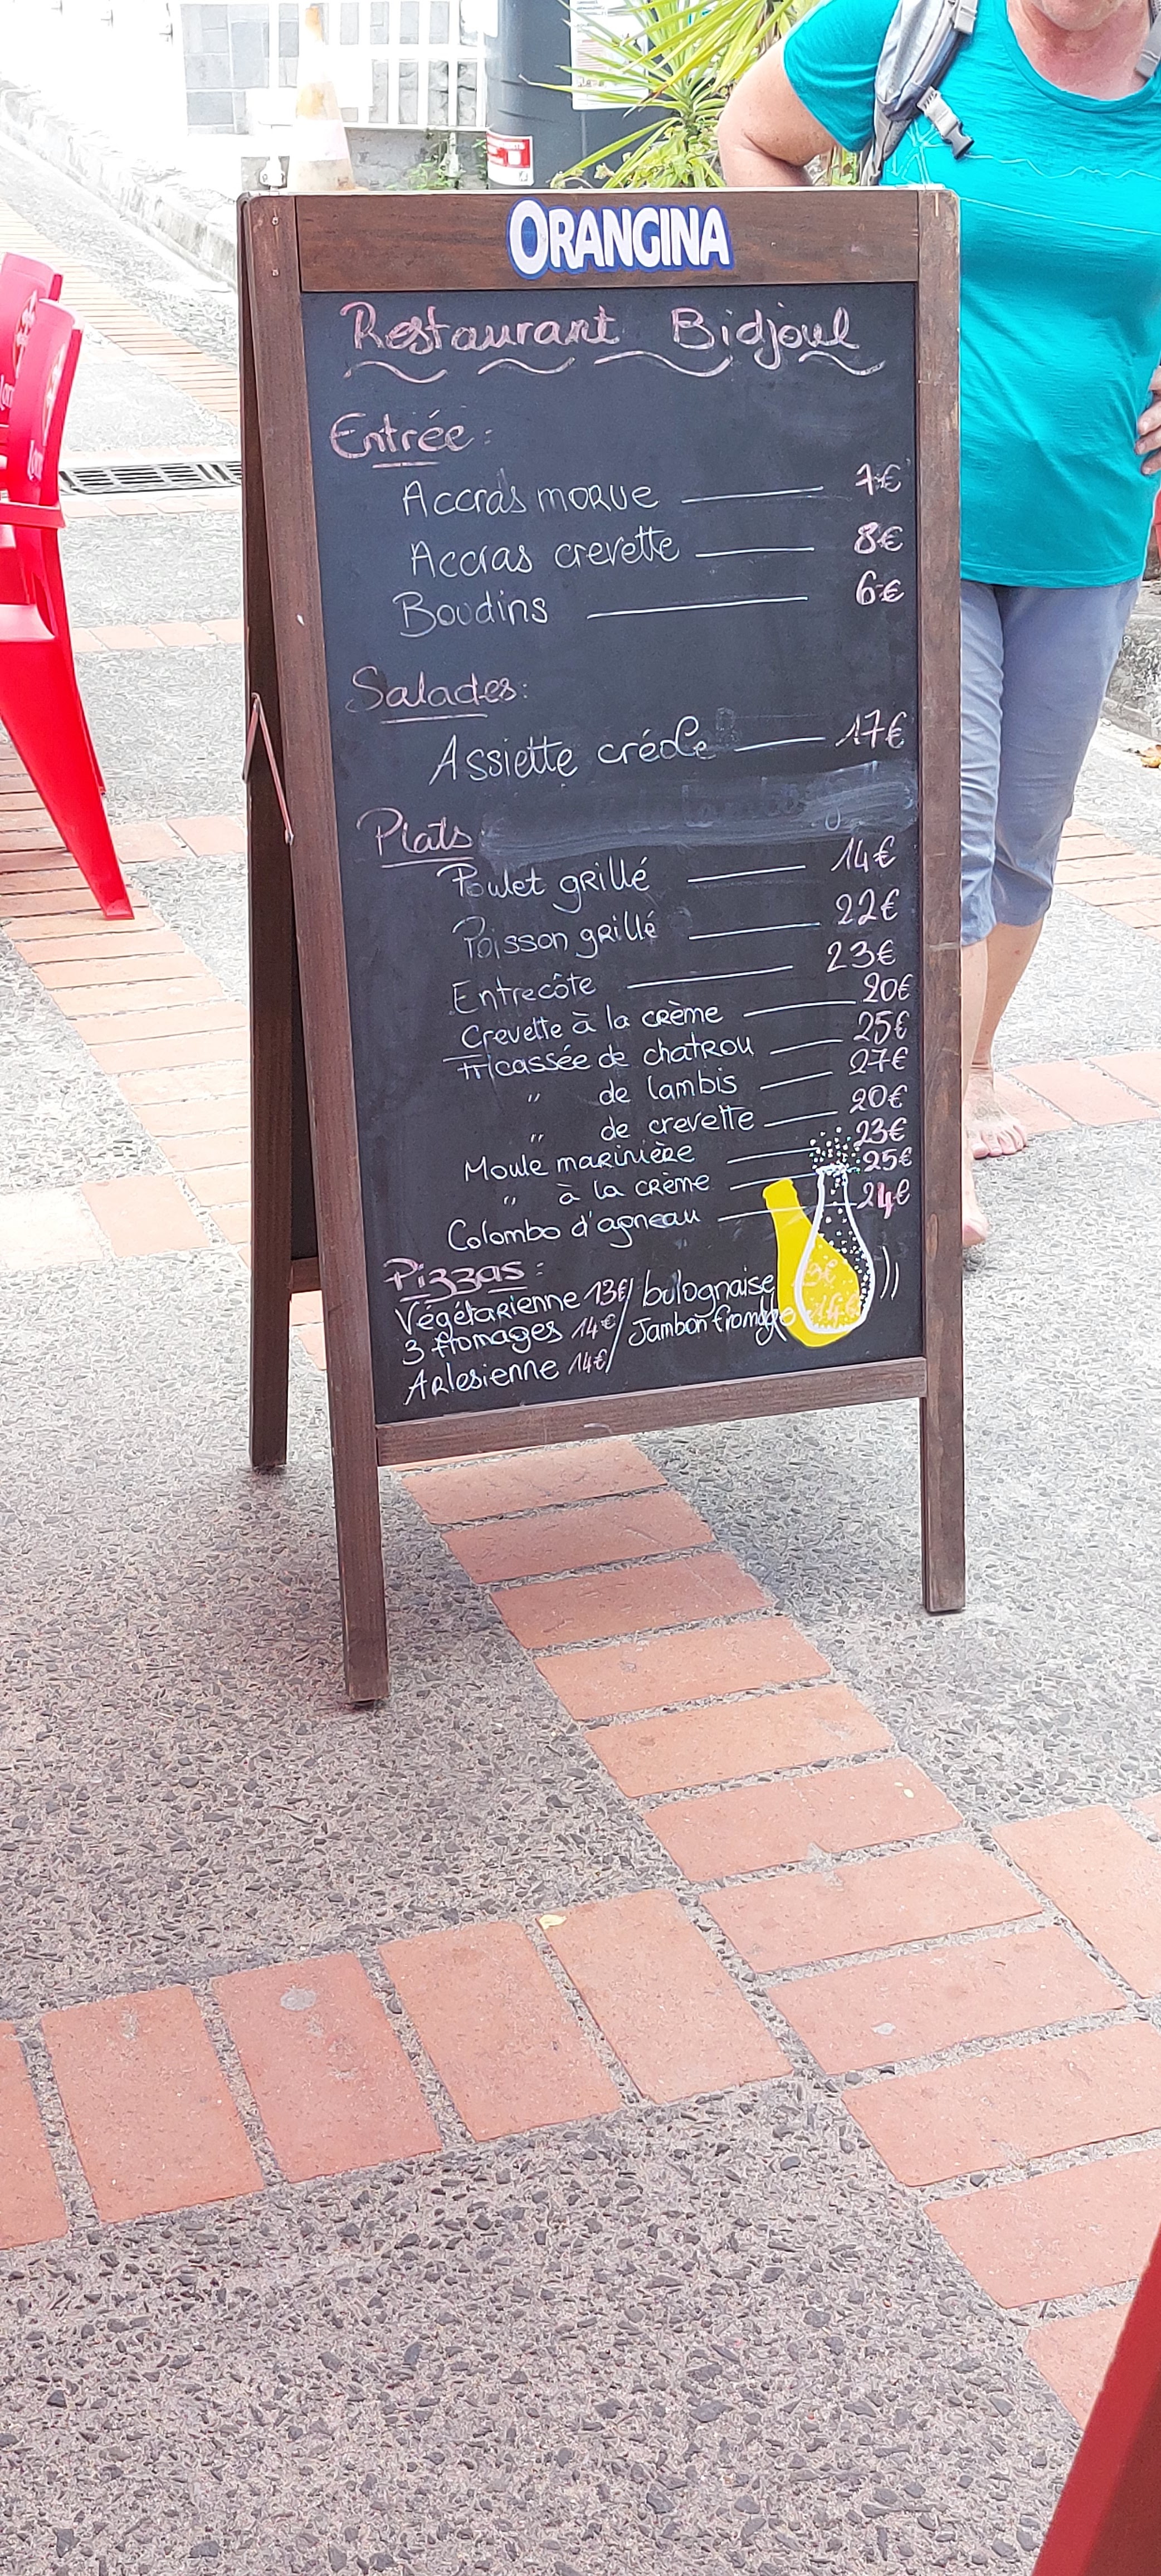 ORANGINA
Restaurant Bidjoul
Entrée :
Accras morue 7€
Accras crevette 8€
Boudins 6€
Salades :
Assiette créole 17€
Plats
Poulet grillé 14€
Poisson grillé 22€
Entrecôte 23€
Crevette à la crème 20€
Fricassée de chatrou 25€
" de lambis 27€
" de crevette 20€
Moule marinière 23€
" à la crème 25€
Colombo d'agneau 24€
Pizzas :
Végétarienne 13€/ bolognaise
3 fromages 14€/ Jambon fromage 14€
Arlesienne 14€/